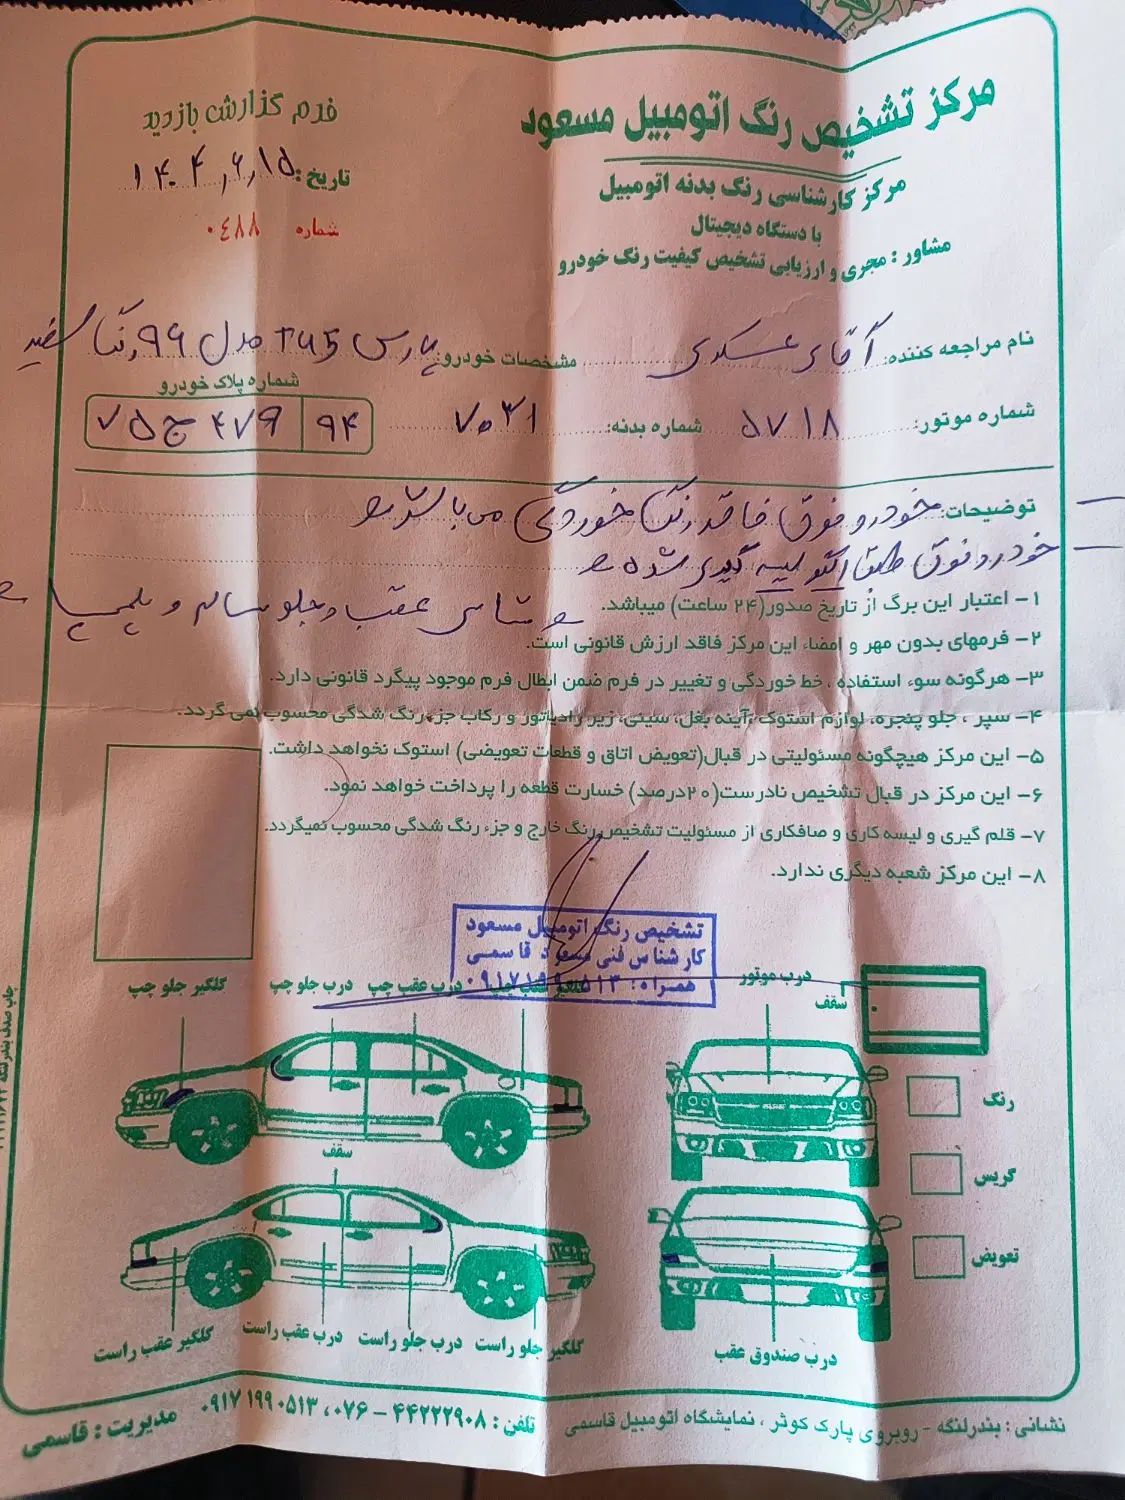 مرکز تشخیص رنگ اتومبیل مسعود
مرکز کارشناسی رنگ بدنه اتومبیل
با دستگاه دیجیتال
مشاور : مجری و ارزیابی تشخیص کیفیت رنگ خودرو
فرم گزارش بازدید
تاریخ: ۱۴۰۴,۶,۱۵
شماره ۰۴۸۸
نام مراجعه کننده: آقای عسکری مشخصات خودرو: پارس TU5 مدل ۹۶ رنگ سفید
شماره پلاک خودرو
شماره موتور: ۵۷۱۸ شماره بدنه: ۷۰۳۱ ۷۵ ج ۴۷۹ ۹۴
توضیحات: خودرو فوق فاقد رنگ خوردگی می باشد
خودرو فوق لیسه گیری شده
شاسی عقب و جلو سالم و پلمپ
۱- اعتبار این برگ از تاریخ صدور(۲۴ ساعت) میباشد.
۲- فرمهای بدون مهر و امضاء این مرکز فاقد ارزش قانونی است.
۳- هرگونه سوء استفاده ، خط خوردگی و تغییر در فرم ضمن ابطال فرم موجود پیگرد قانونی دارد.
۴- سپر ، جلو پنجره، لوازم استوک ،آینه بغل، سینی، زیر رادیاتور و رکاب جزء رنگ شدگی محسوب نمی گردد.
۵- این مرکز هیچگونه مسئولیتی در قبال(تعویض اتاق و قطعات تعویضی) استوک نخواهد داشت.
۶- این مرکز در قبال تشخیص نادرست(۲۰درصد) خسارت قطعه را پرداخت خواهد نمود.
۷- قلم گیری و لیسه کاری و صافکاری از مسئولیت تشخیص رنگ خارج و جزء رنگ شدگی محسوب نمیگردد.
۸- این مرکز شعبه دیگری ندارد.
تشخیص رنگ اتومبیل مسعود
کارشناس فنی مسعود قاسمی
همراه: ۰۹۱۷۱۹۹۰۵۱۳
درب موتور
سقف
درب عقب چپ
درب جلو چپ
گلگیر جلو چپ
رنگ
گریس
تعویض
سقف
گلگیر عقب راست
درب عقب راست
درب جلو راست
گلگیر جلو راست
درب صندوق عقب
نشانی : بندرلنگه - روبروی پارک کوثر ، نمایشگاه اتومبیل قاسمی
تلفن : ۴۴۲۲۲۹۰۸ - ۰۷۶ ، ۰۹۱۷۱۹۹۰۵۱۳
مدیریت : قاسمی